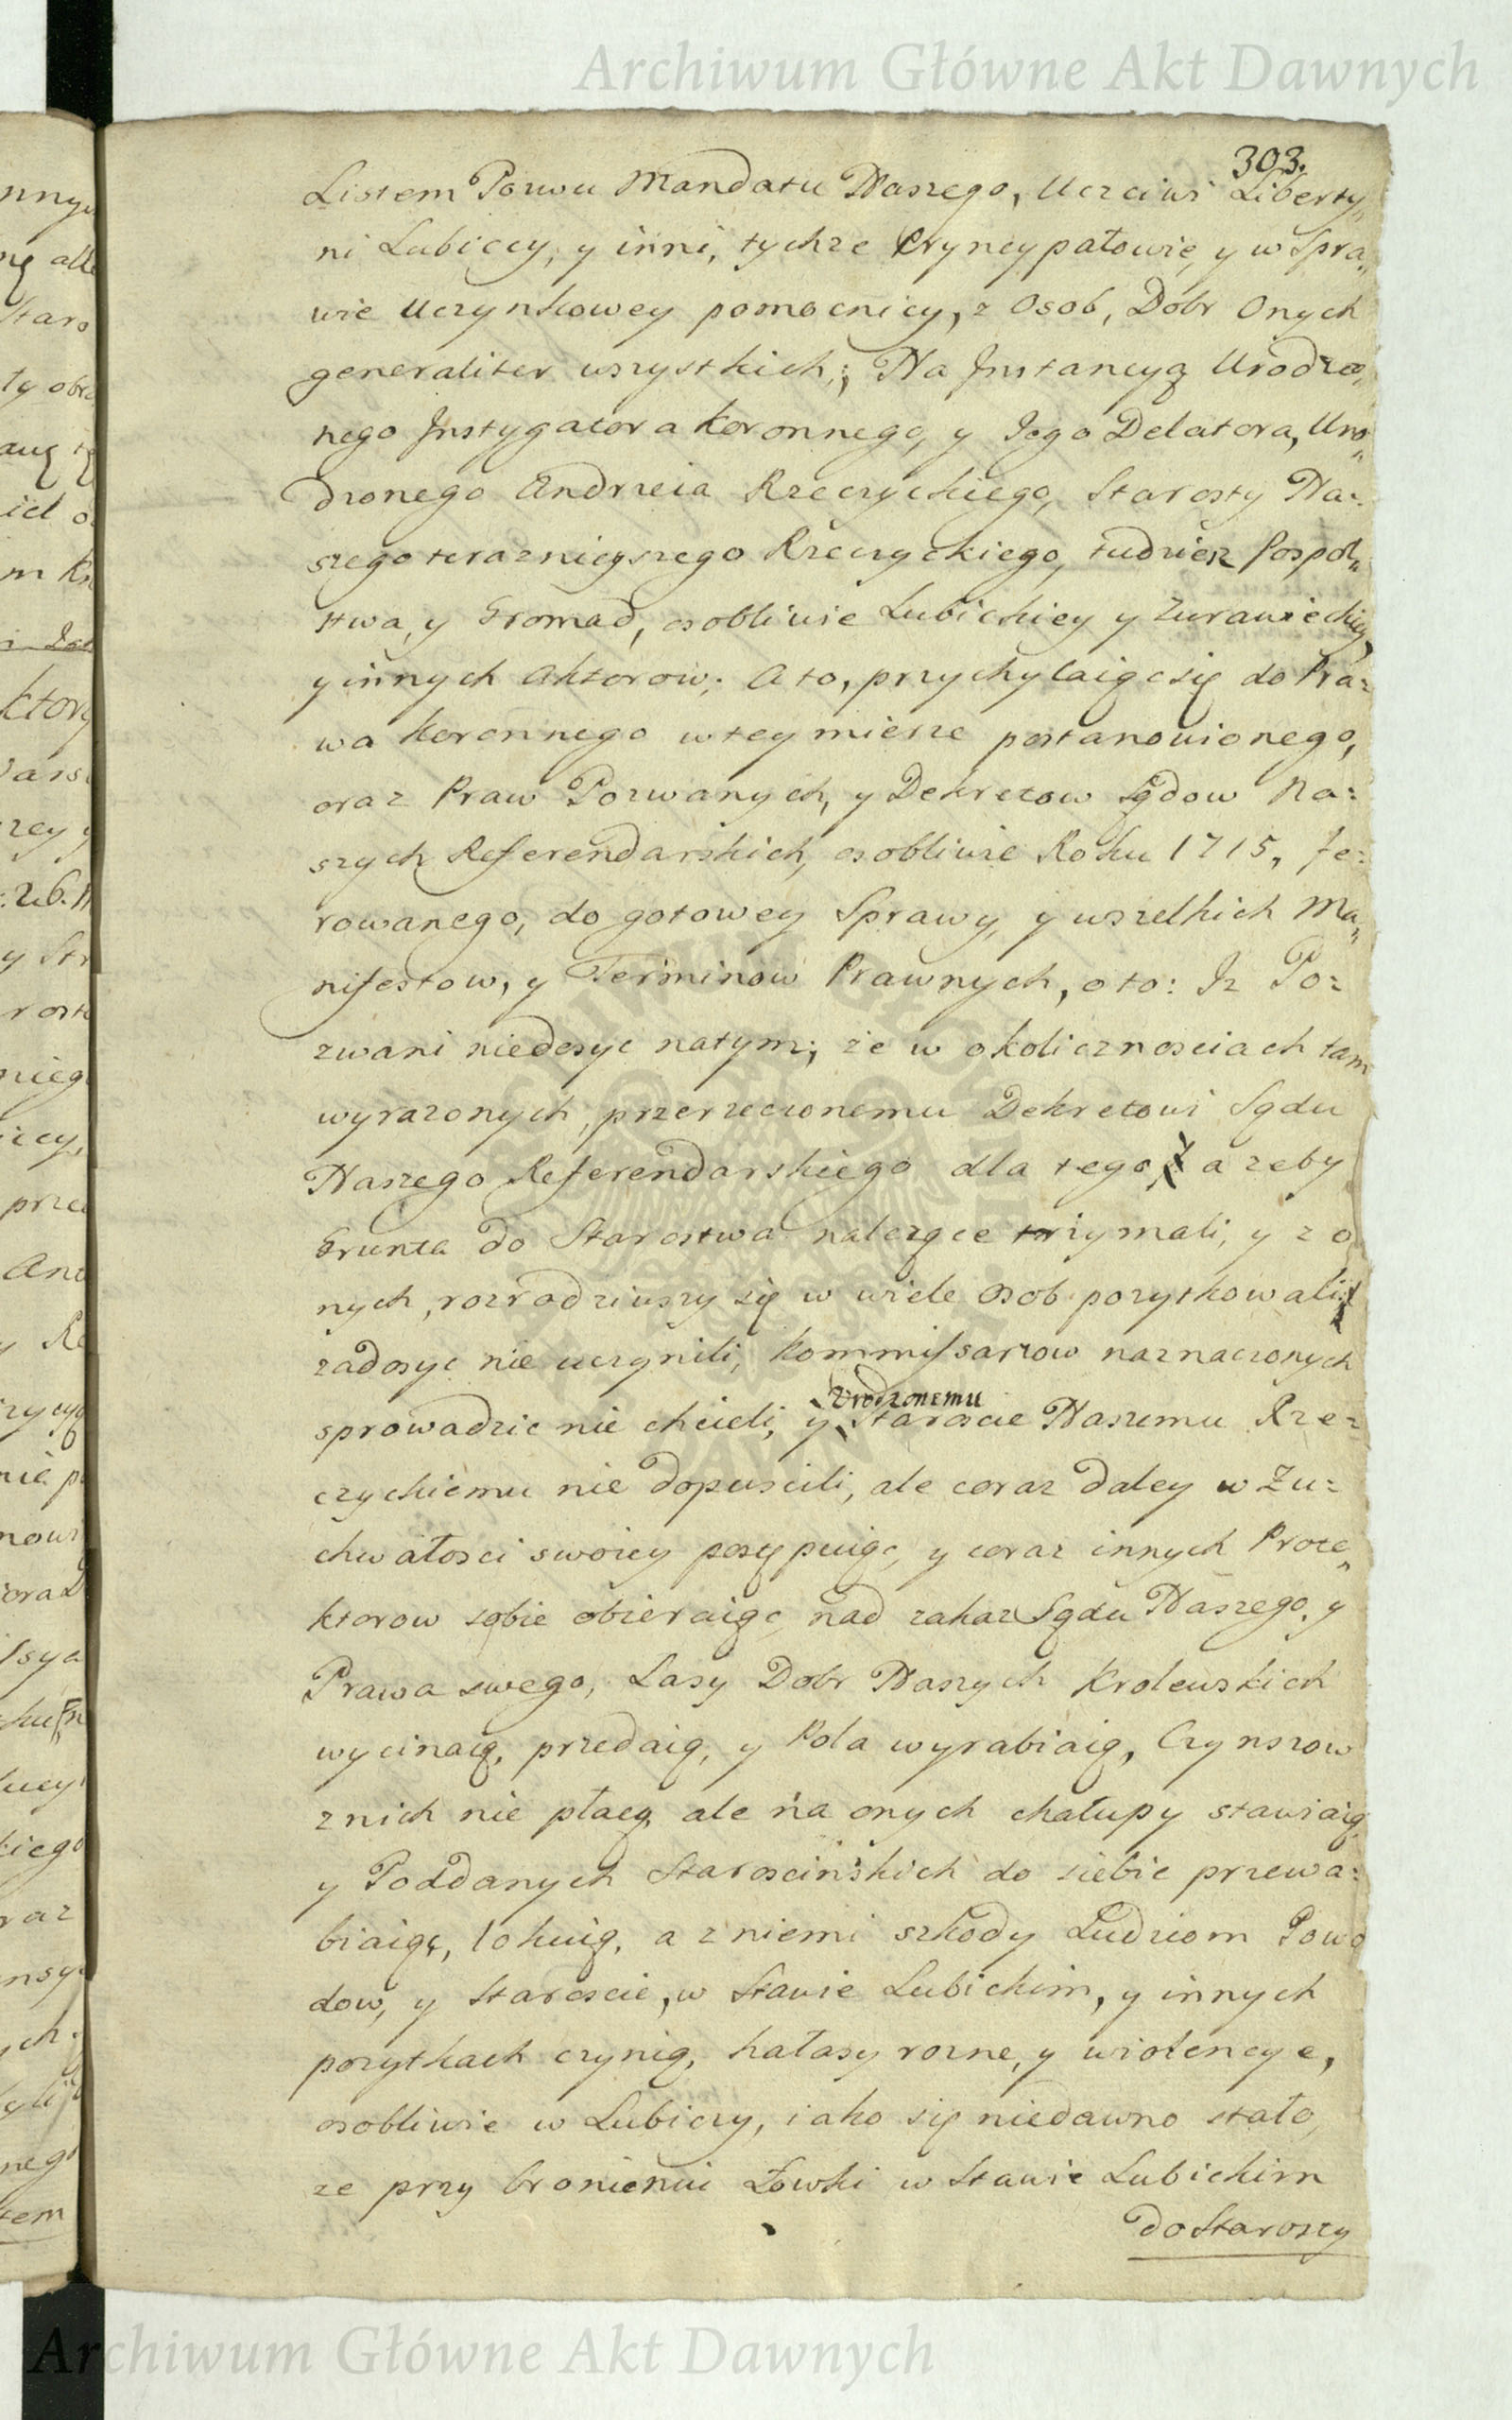 Archiwum Główne Akt Dawnych
303.
Listem Pozwu Mandatu Naszego, Uczciwi Liberty„
ni Lubiccy, y inni, tychze Pryncypałowie, y w Spra„
wie Uczynkowey pomocnicy, z Osob, Dobr Onych
generaliter wszystkich; Na Jnstancyą Urodzo„
nego Jnstygatora Koronnego, y Jego Delatora, Uro„
dzonego Andrzeia Rzeczyckiego, Starosty Na:
szego teraznieyszego Rzeczyckiego, tudziesz Pospol„
stwa, y Gromad, osobliwie Lubickiey y Zurawieckiey,
y innych Aktorow; A to, przychylaiąc się do Pra:
wa Koronnego w tey mierze postanowionego,
oraz Praw Pozwanych, y Dekretow Sądow Na:
szych Referendarskich, osobliwie Roku 1715, fe:
rowanego, do gotowey Sprawy, y wszelkich Ma„
nifestow, y Terminow Prawnych, o to: Jz Po:
zwani niedosyc natym; że w okolicznosciach tam
wyrazonych, przerzeczonemu Dekretowi Sądu
Naszego Referendarskiego dla tego, azeby
Grunta do Starostwa nalezące trzymali, y z o
nych, rozrodziwszy się w wiele Osob pozytkowali,
zadosyc nie uczynili, Kommissarzow naznaczonych
Urodzonemu
sprowadzic nie chcieli, y Staroscie Naszemu Rze:
czyckiemu nie dopuscili, ale coraz daley w Zu:
chwałosci swoiey postępuiąc, y coraz innych Prote„
ktorow sobie obieraiąc, nad zakaz Sądu Naszego, y
Prawa swego, Lasy Dobr Naszych Krolewskich
wycinaią, przedaią, y Pola wyrabiaią, Czynszow
z nich nie płacą, ale na onych chałupy stawiaią
y Poddanych Staroscińskich do siebie przewa:
biaiąc, lokuią, a z niemi szkody Ludziom Powo
dow, y Staroscie, w Stawie Lubickim, y innych
pozytkach czynią, hałasy rozne, y wiolencye,
osobliwie w Lubiczy, iako się niedawno stało,
ze przy bronieniu Łowki w Stawie Lubickim
do Starosty
Archiwum Główne Akt Dawnych